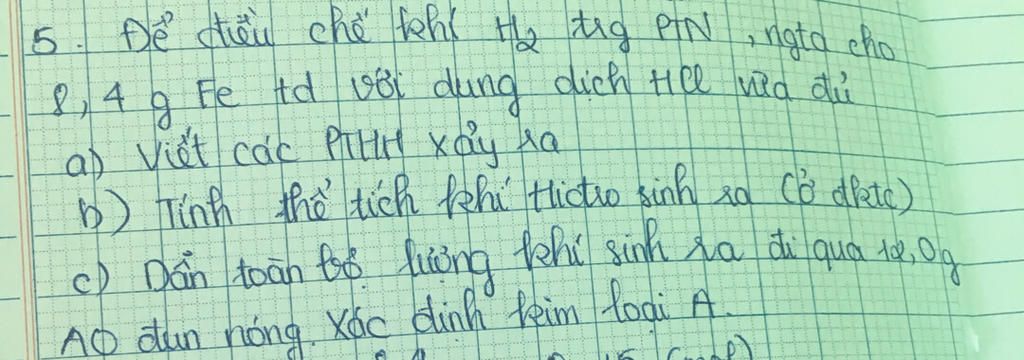 5. Để điều chế khí H2 trg PTN, ngta cho
8,4 g Fe td với dung dịch HCl vừa đủ
a) Viết các PTHH xảy ra
b) Tính thể tích khí Hidro sinh ra (ở đktc)
c) Dẫn toàn bộ lượng khí sinh ra đi qua 12,0g
AO đun nóng. Xác định kim loại A.